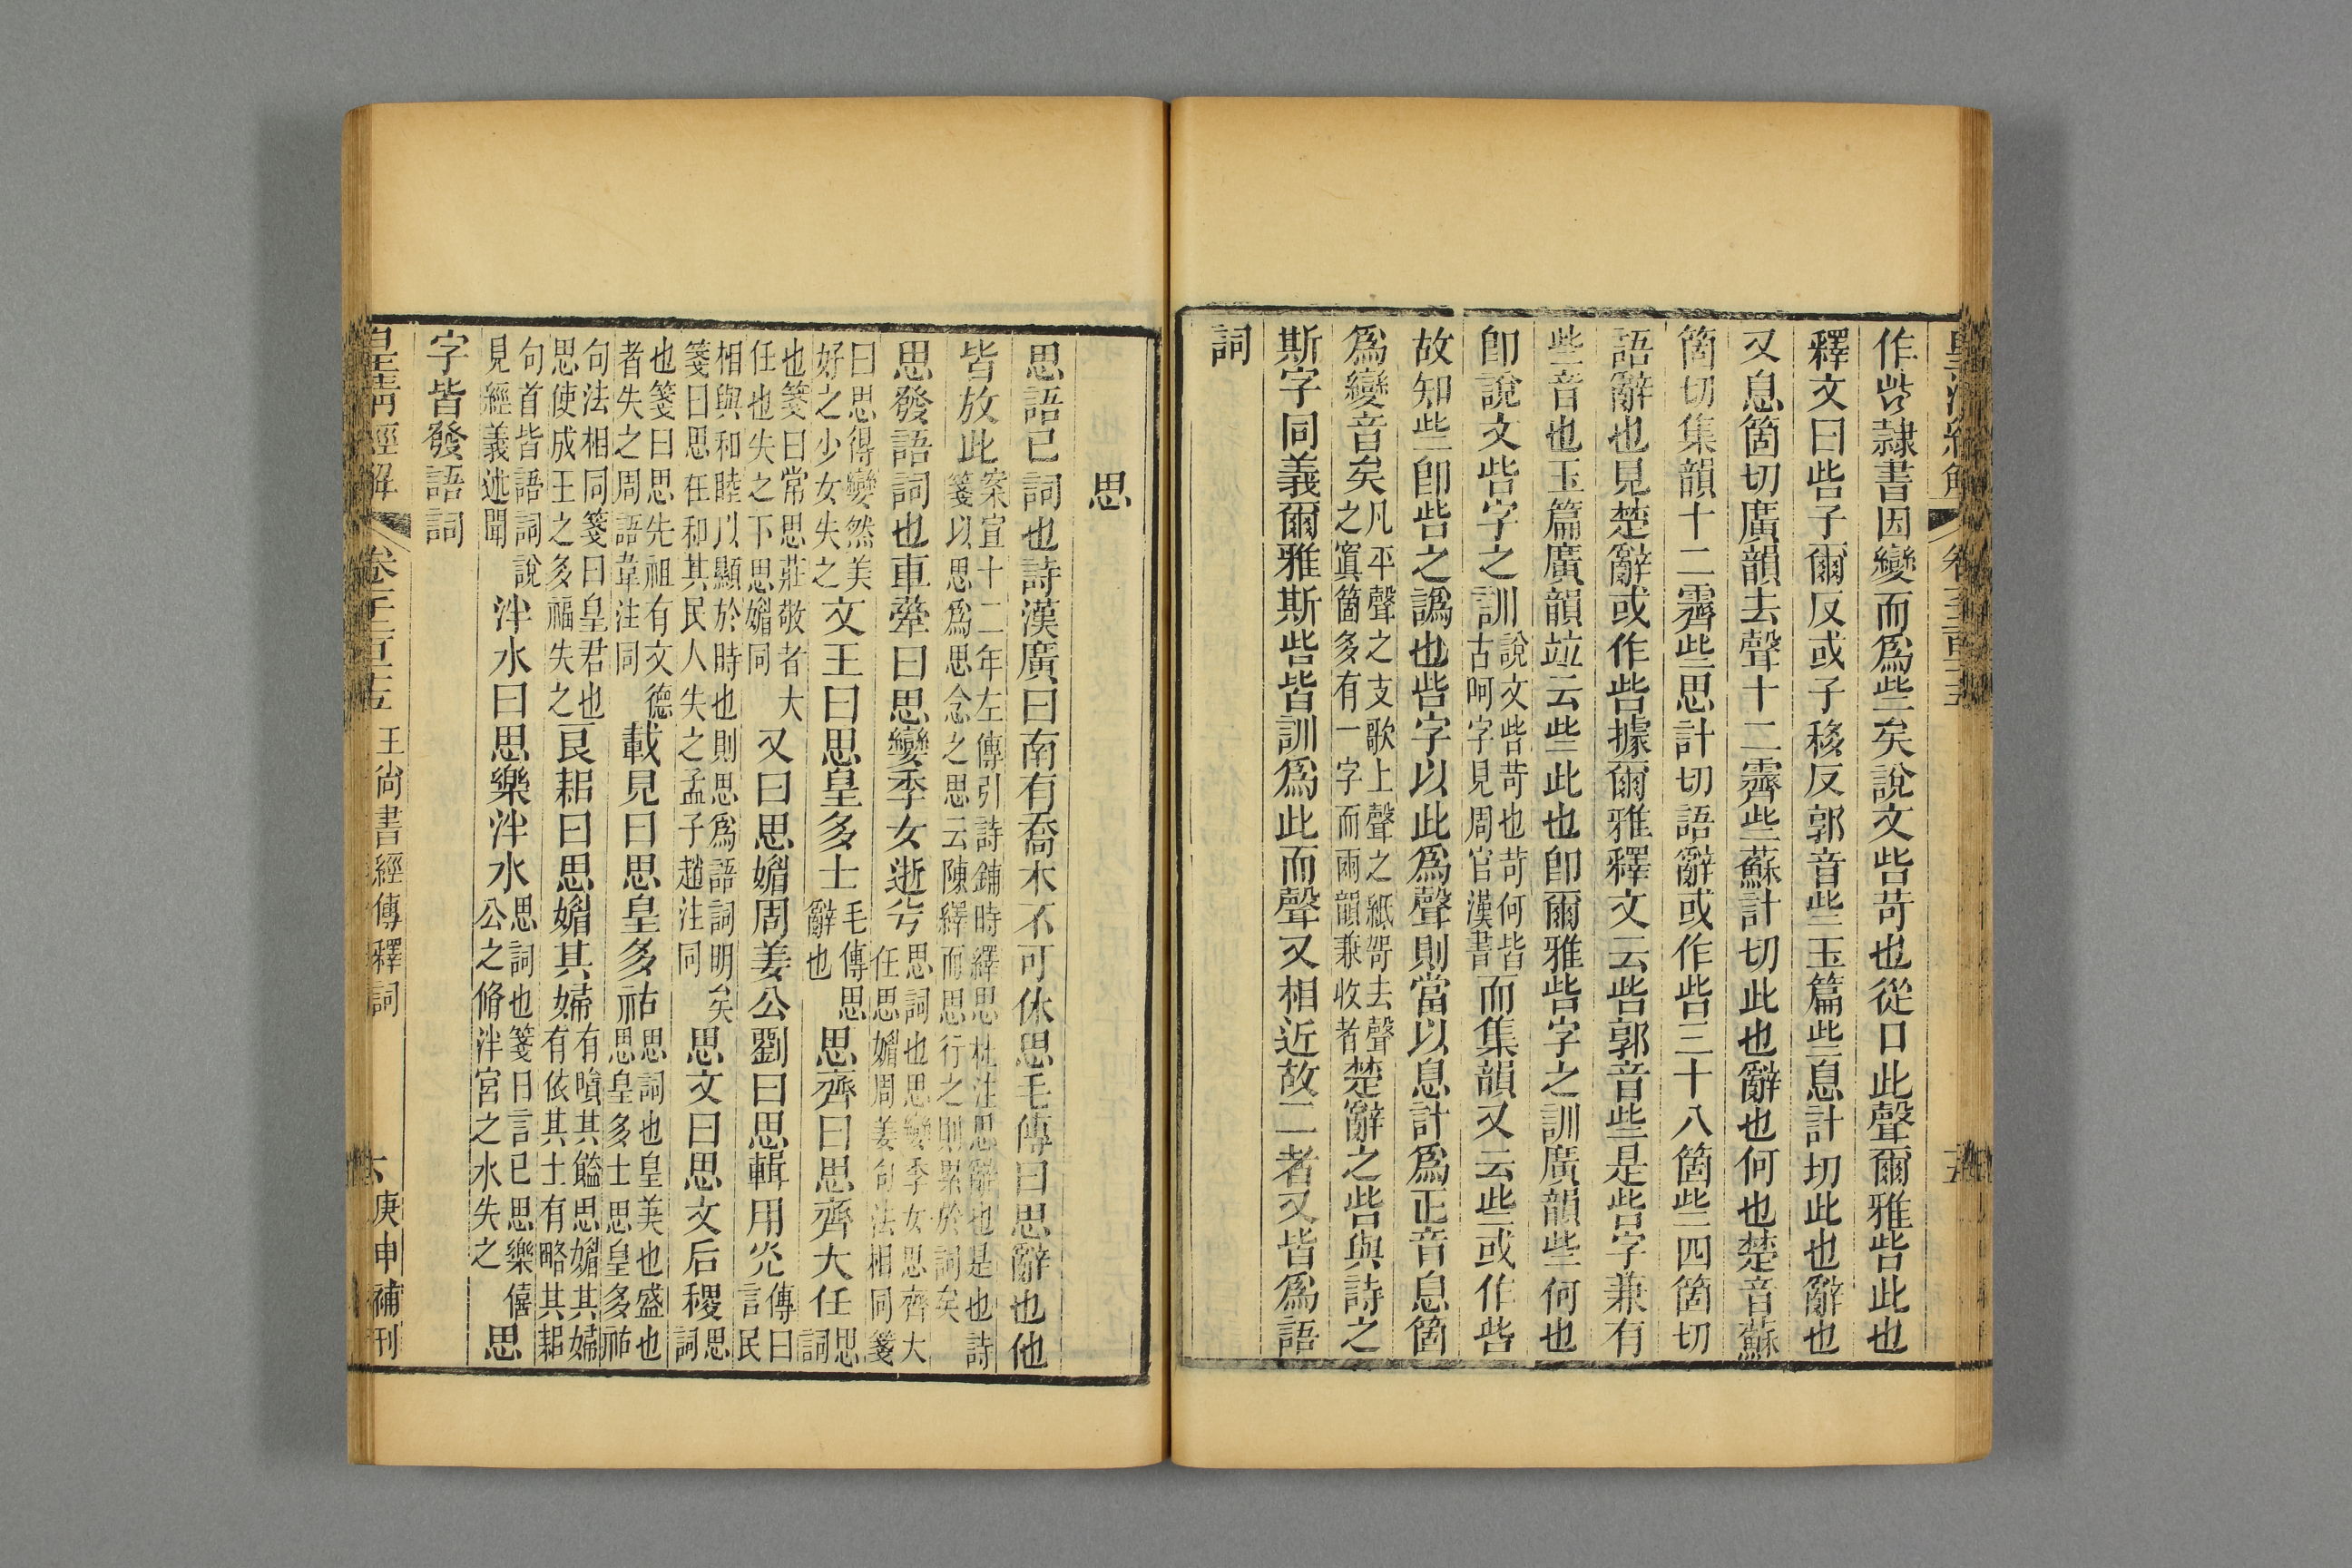 皇清經解 卷千二百十五 五
作㱔隸書因變而爲些矣說文呰苛也從口此聲爾雅呰此也
釋文曰呰子爾反或子移反郭音些玉篇些息計切此也辭也
又息箇切廣韻去聲十二霽些蘇計切此也辭也何也楚音蘇
箇切集韻十二霽些思計切語辭或作呰三十八箇些四箇切
語辭也見楚辭或作呰據爾雅釋文云呰郭音些是呰字兼有
些音也玉篇廣韻竝云些此也卽爾雅呰字之訓廣韻些何也
卽說文呰字之訓說文呰苛也苛何皆古呵字見周官漢書而集韻又云些或作呰
故知些卽呰之譌也呰字以此爲聲則當以息計爲正音息箇
爲變音矣凡平聲之支歌上聲之紙哿去聲之寘箇多有一字而兩韻兼收者楚辭之呰與詩之
斯字同義爾雅斯呰皆訓爲此而聲又相近故二者又皆爲語
詞
思
思語已詞也詩漢廣曰南有喬木不可休思毛傳曰思辭也他
皆放此案宣十二年左傳引詩鋪時繹思杜注思辭也是也詩箋以思爲思念之思云陳繹而思行之則累於詞矣
思發語詞也車舝曰思孌季女逝兮思詞也思孌季女思齊大任思媚周姜句法相同箋
曰思得孌然美好之少女失之文王曰思皇多士毛傳思辭也思齊曰思齊大任思詞
也箋曰常思莊敬者大任也失之下思媚同又曰思媚周姜公劉曰思輯用光傳曰言民
相與和睦以顯於時也則思爲語詞明矣箋曰思在和其民人失之孟子趙注同思文曰思文后稷思詞
也箋曰思先祖有文德者失之周語韋注同載見曰思皇多祜思詞也皇美也盛也思皇多士思皇多祜
句法相同箋曰皇君也思使成王之多福失之良耜曰思媚其婦有嗿其饁思媚其婦有依其士有略其耜
句首皆語詞說見經義述聞泮水曰思樂泮水思詞也箋曰言已思樂僖公之脩泮宮之水失之思
字皆發語詞
皇清經解 卷千二百十五 王尙書經傳釋詞 六 庚申補刊